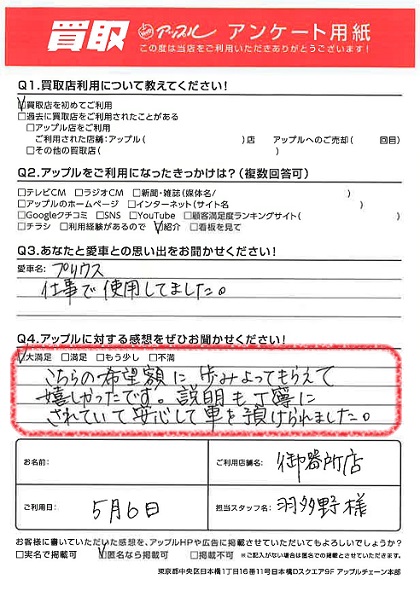 買取 アップル アンケート用紙
この度は当店をご利用いただきありがとうございます!
Q1.買取店利用について教えてください!
☑買取店を初めてご利用
□過去に買取店をご利用されたことがある
□アップル店をご利用
ご利用された店舗:アップル( )店 アップルへのご売却( 回目)
□その他の買取店( )
Q2.アップルをご利用になったきっかけは?(複数回答可)
□テレビCM □ラジオCM □新聞・雑誌(媒体名/ )
□アップルのホームページ □インターネット(サイト名 )
□Googleクチコミ □SNS □YouTube □顧客満足度ランキングサイト( )
□チラシ □利用経験があるので ☑紹介 □看板を見て
Q3.あなたと愛車との思い出をお聞かせください!
愛車名:プリウス
仕事で使用してました。
Q4.アップルに対する感想をぜひお聞かせください!
☑大満足 □満足 □もう少し □不満
こちらの希望額に歩みよってもらえて
嬉しかったです。説明も丁寧に
されていて安心して車を預けられました。
お名前: ご利用店舗名: 御器所店
ご利用日: 5月6日 担当スタッフ名: 羽多野様
お客様に書いていただいた感想を、アップルHPや広告に掲載させていただいてもよろしいでしょうか?
□実名で掲載可 ☑匿名なら掲載可 □掲載不可 ※ご記入がない場合は匿名での掲載とさせていただきます。
東京都中央区日本橋1丁目16番11号日本橋Dスクエア9F アップルチェーン本部